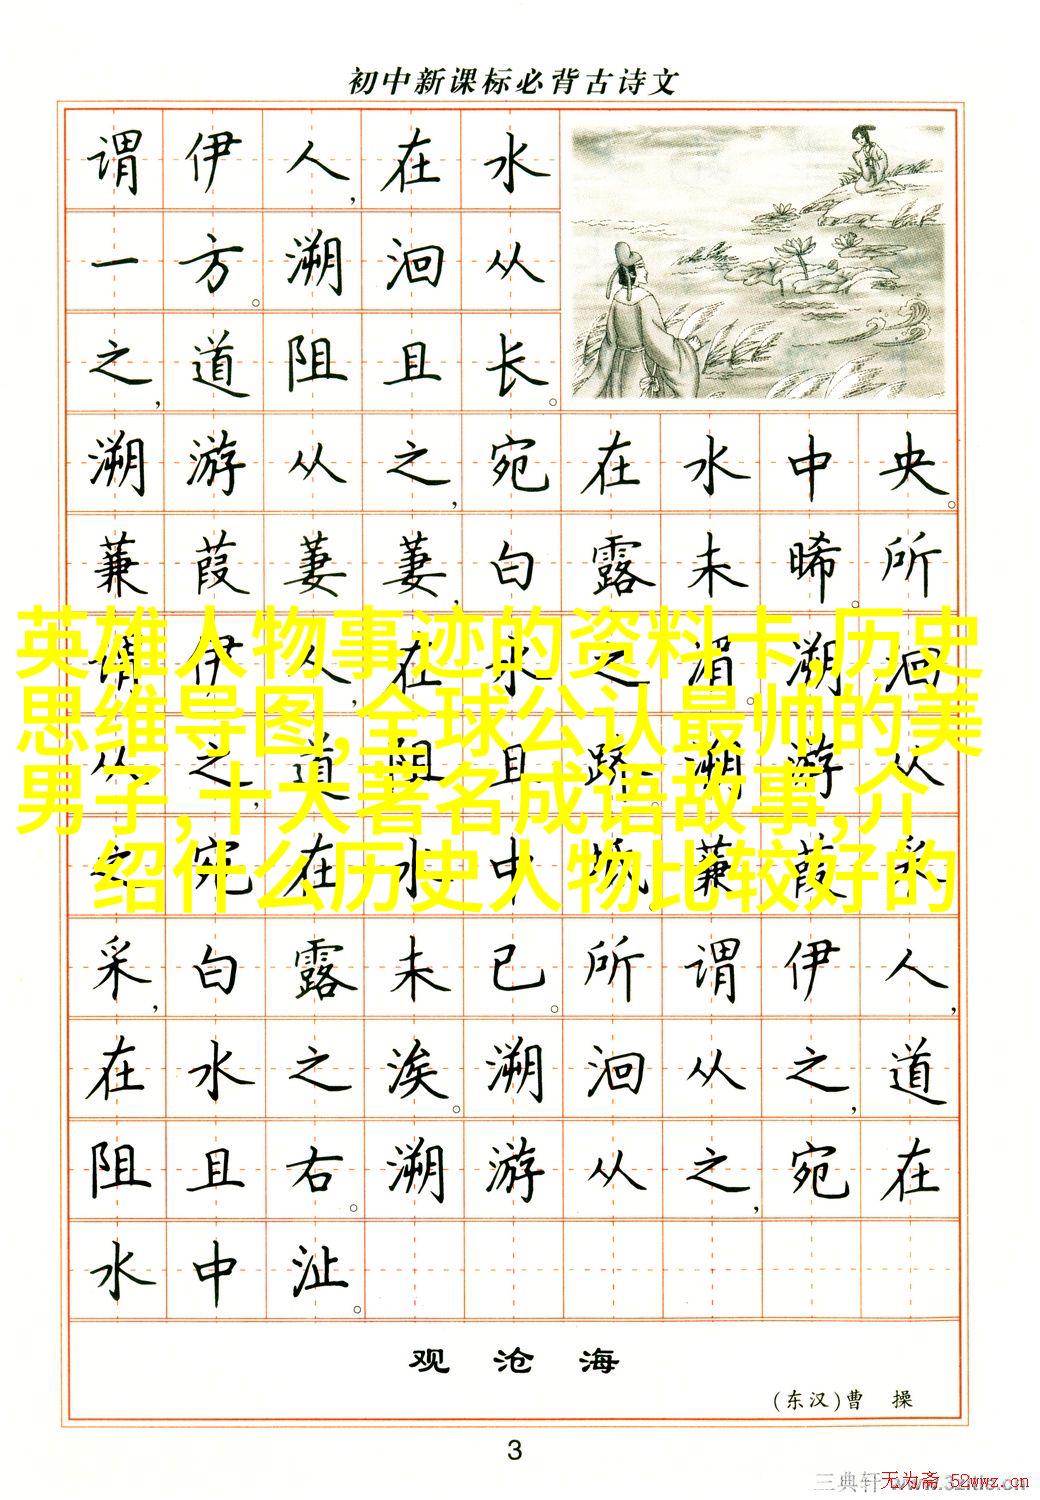 初中新课标必背古诗文
谓伊人,在水
一方。溯洄从
之,道阻且长。
溯游从之,宛在水中央。
蒹葭萋萋,白露未晞。所
谓伊人,在水之湄。溯洄
英雄人物事迹的资料卡,历史
思维导图,全球公认最帅的美
男子,十大著名成语故事,介
绍什么历史人物比较好的
从之,道阻且跻。溯游从
之,宛在水中坻。蒹葭采
采,白露未已。所谓伊人,
在水之涘。溯洄从之,道
阻且右。溯游从之,宛在
水中沚。
观沧海
(东汉)曹操
3
三典轩
无为斋 52wwz.cn